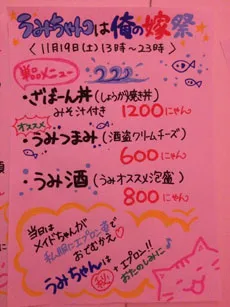 うみちゃんは俺の嫁祭
〈11月19日(土)13時〜23時〉
メニュー
・ざばーん丼(しょうが焼き丼)
みそ汁付き 1200にゃん
オススメ
・うみつまみ(酒盗クリームチーズ)
600にゃん
・うみ酒(うみオススメ泡盛)
800にゃん
当日は
メイドちゃんが
私服にエプロン姿で
おでむかえ♡
うみちゃんは
㊙+エプロン!!
おたのしみに♪